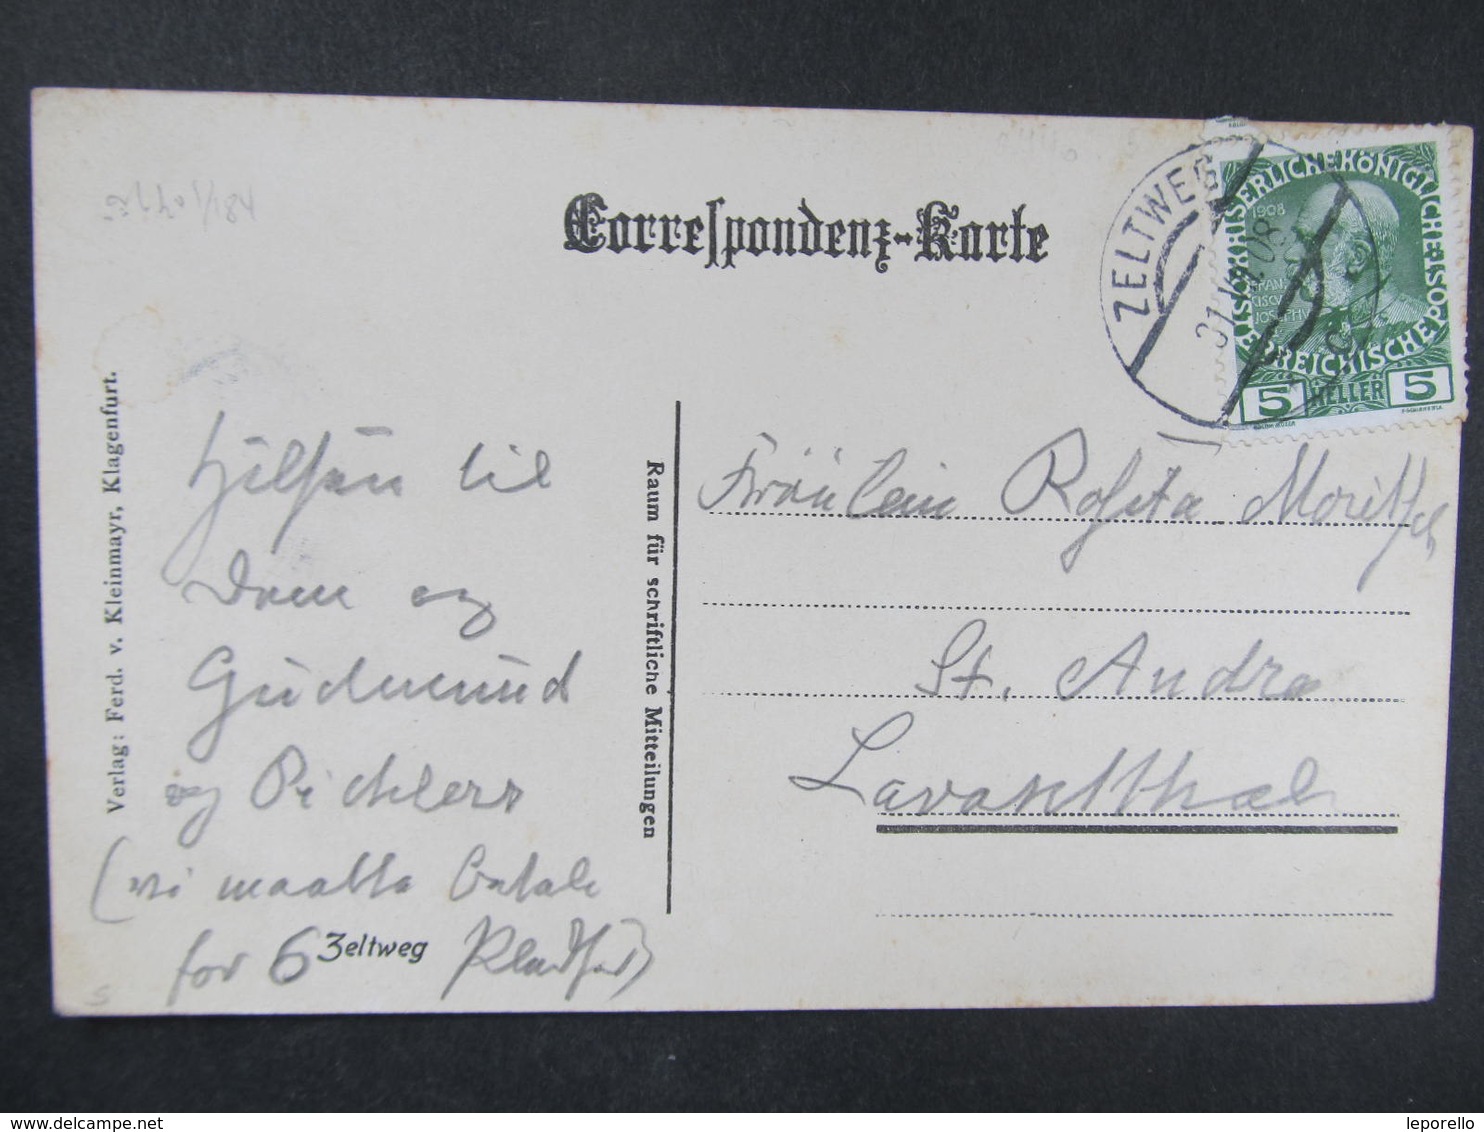 Correspondenz-Karte
ZELTWEG
KAISERLICHE KÖNIGLICHE ÖSTERREICHISCHE POST
1908
FRANZ
JOSEPH
5 HELLER 5
Verlag: Ferd. v. Kleinmayr, Klagenfurt.
Raum für schriftliche Mitteilungen
Hilsen til
Dem og
Gudmund
og Pichlers
(vi maatte betale
for 6
Zeltweg
Fräulein Rosita Moritsch
St. Andrä
Lavantthal
delcampe.net
leporello